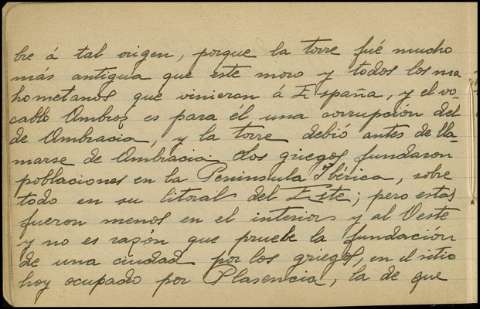 bre á tal origen, porque la torre fué mucho
más antigua que este moro y todos los ma
hometanos que vinieron á España, y el vo
cablo Ambroz es para él, una corrupción del
de Ambracia, y la torre debió antes de lla-
marse de Ambracia. Los griegos fundaron
poblaciones en la Península Ibérica, sobre
todo en su litoral del Este; pero estas
fueron menos en el interior y al Oeste
y no es razón que pruebe la fundación
de una ciudad por los griegos, en el sitio
hoy ocupado por Plasencia, la de que